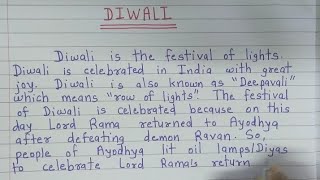 DIWALI
Diwali is the festival of lights.
Diwali is celebrated in India with great
joy. Diwali is also known as "Deepavali"
which means "row of lights". The festival
of Diwali is celebrated because on this
day Lord Rama returned to Ayodhya
after defeating demon Ravan. So,
people of Ayodhya lit oil lamps/Diyas
to celebrate Lord Rama's return